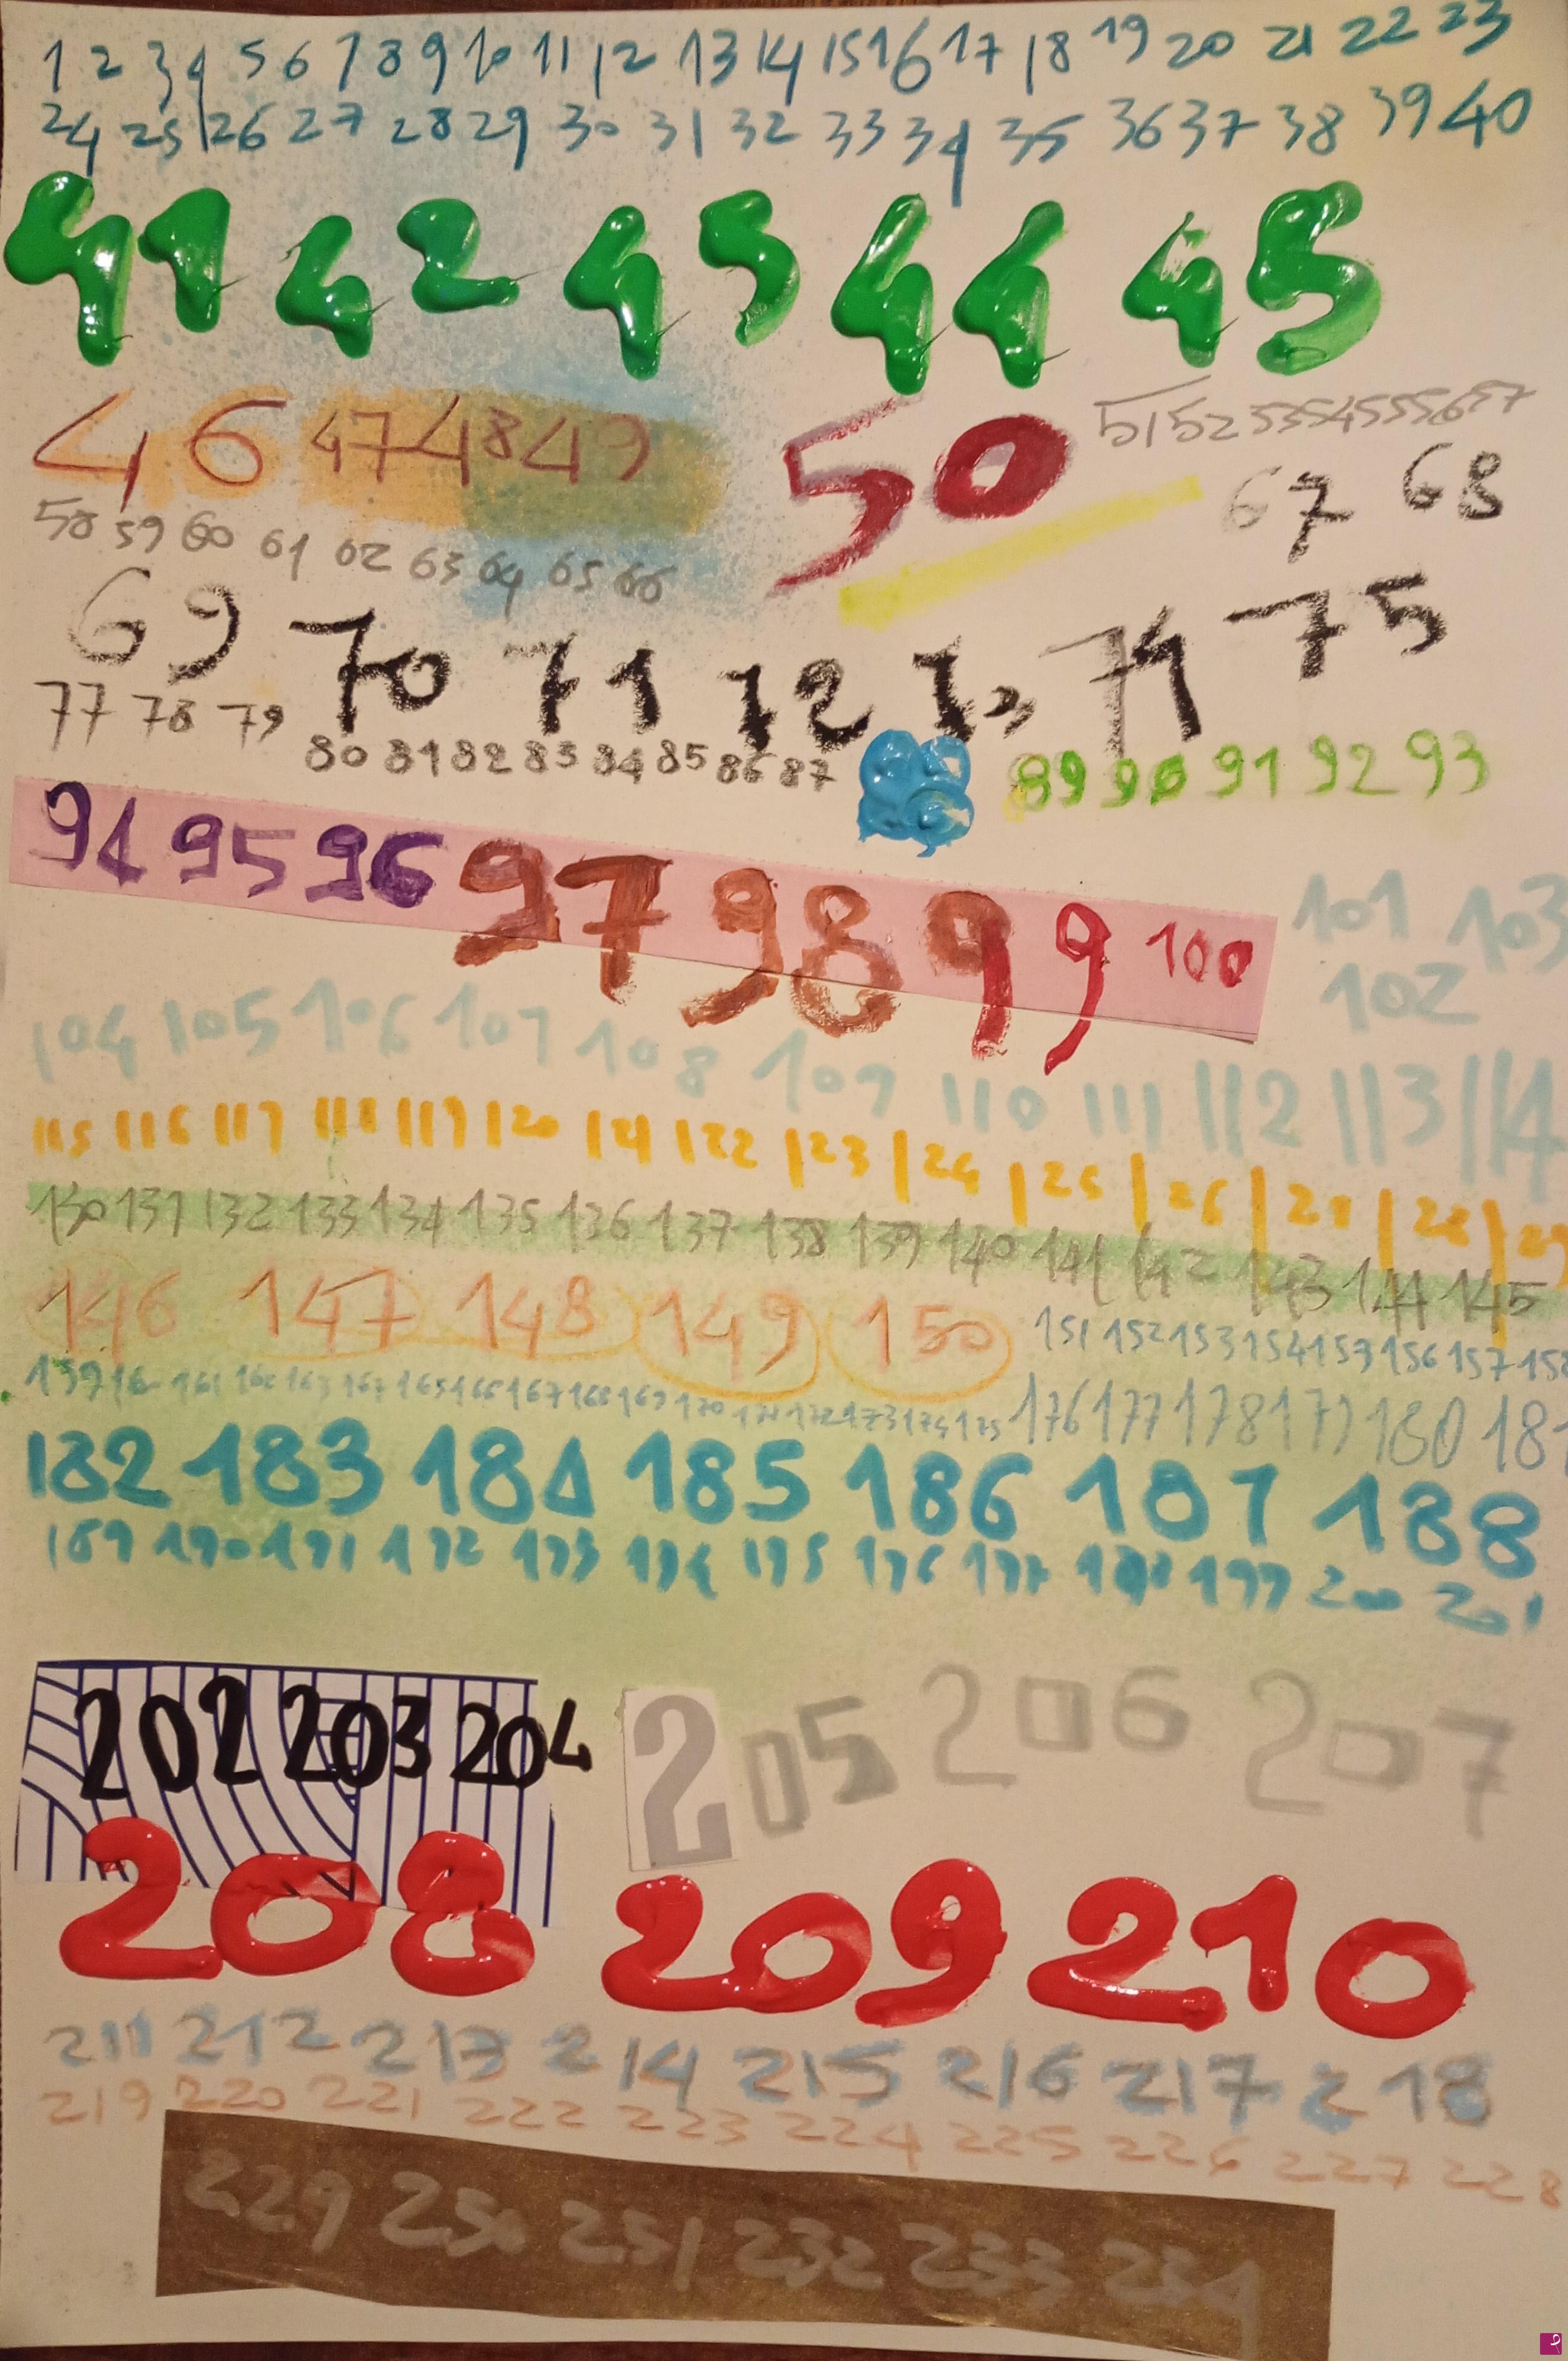 1 2 3 4 5 6 7 8 9 10 11 12 13 14 15 16 17 18 19 20 21 22 23
24 25 26 27 28 29 30 31 32 33 34 35 36 37 38 39 40
41 42 43 44 45
46 47 48 49 50 51 52 53 54 55 56 57
58 59 60 61 62 63 64 65 66 67 68
69 70 71 72 73 74 75
77 78 79 80 81 82 83 84 85 86 87 88 89 90 91 92 93
94 95 96 97 98 99 100 101 103
102
104 105 106 107 108 109 110 111 112 113 114
115 116 117 118 119 120 121 122 123 124 125 126 127 128 129
130 131 132 133 134 135 136 137 138 139 140 141 142 143 144 145
146 147 148 149 150 151 152 153 154 153 156 157 158
159 160 161 162 163 164 165 166 167 168 169 170 171 172 173 174 175 176 177 178 179 180 181
182 183 184 185 186 187 188
189 190 191 192 193 194 195 196 197 198 199 200 201
202 203 204 205 206 207
208 209 210
211 212 213 214 215 216 217 218
219 220 221 222 223 224 225 226 227 228
229 230 231 232 233 234